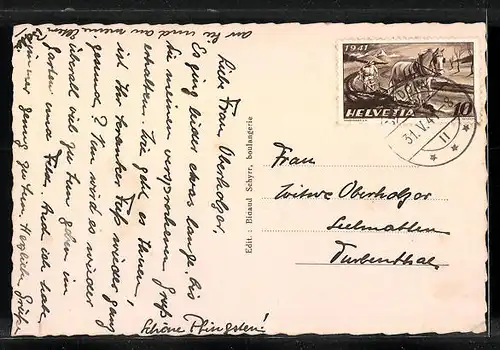 Liebe Frau Oberholzer,
Es ging leider etwas lange, bis
Sie meinen versprochenen Gruß
erhalten. Wie geht es Ihnen,
ist Ihr kranker Fuß wieder ganz
gesund? Nun wird es wieder
überall viel zu tun geben im
Garten und Feld, auch ich hab
immer genug zu tun. Herzliche Grüße
an Sie und an meine
Schöne Pfingsten!
Edit.: Biaud Schyrr, boulangerie
1941
HELVETIA
10
31.V.4
11
Frau
Witwe Oberholzer
Seelmatten
Turbenthal